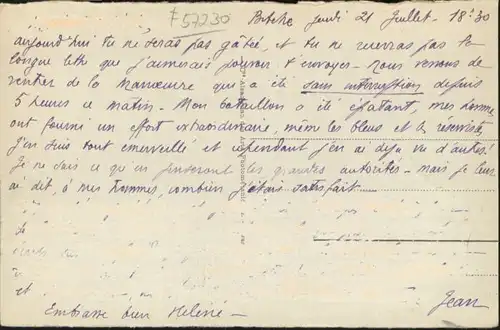 F 57230
Bitche Jeudi 21 Juillet - 18h30
aujourd'hui tu ne seras pas gâtée, et tu ne recevras pas la
longue lettre que j'aimerais pouvoir t'envoyer - nous venons de
rentrer de la Manœuvre qui a été sans interruption depuis
5 heures ce matin - Mon bataillon a été épatant, mes hommes
ont fourni un effort extraordinaire, même les bleus et les réservistes
J'en suis tout émerveillé et cependant j'en ai déjà vu d'autres!
Je ne sais ce qu'en penseront les grandes autorités - mais je leur
ai dit, à mes hommes, combien j'étais satisfait
Jean
Embrasse bien Hélène -